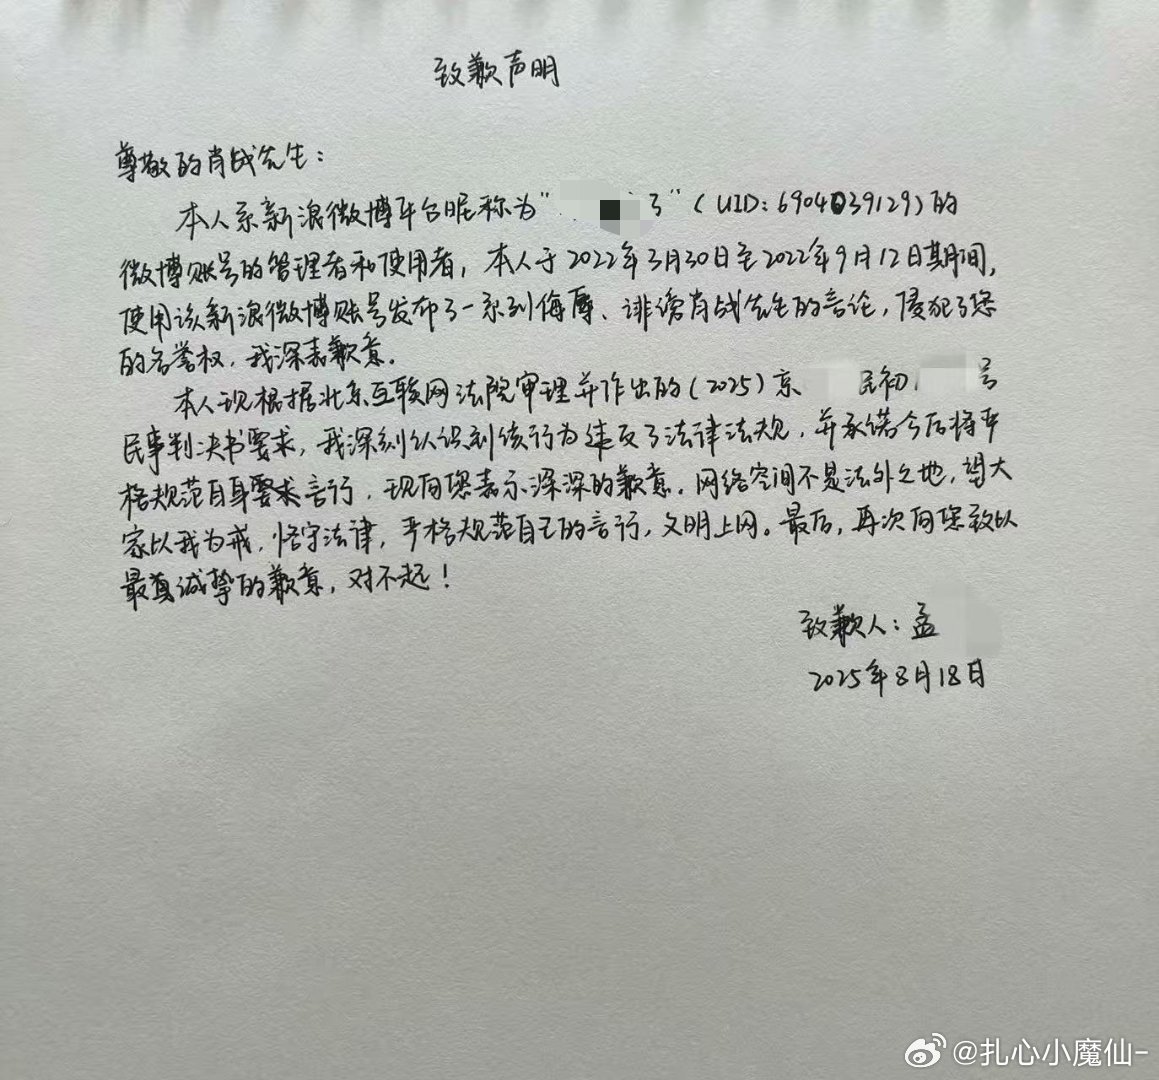 致歉声明
尊敬的肖战先生：
本人系新浪微博平台昵称为“号”（UID：6904039129）的
微博账号的管理者和使用者，本人于2022年3月30日至2022年9月12日期间，
使用该新浪微博账号发布了一系列侮辱、诽谤肖战先生的言论，侵犯了您
的名誉权，我深表歉意。
本人现根据北京互联网法院审理并作出的（2025）京 民初 号
民事判决书要求，我深刻认识到该行为违反了法律法规，并承诺今后将严
格规范自身要求言行，现向您表示深深的歉意。网络空间不是法外之地，望大
家以我为戒，恪守法律，严格规范自己的言行，文明上网。最后，再次向您致以
最真诚挚的歉意，对不起！
致歉人：孟
2025年8月18日
@扎心小魔仙-